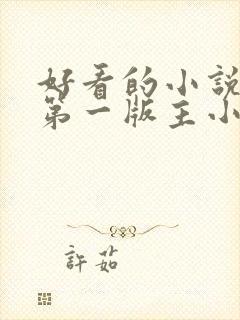 好看的小說
第一版主小
許茹